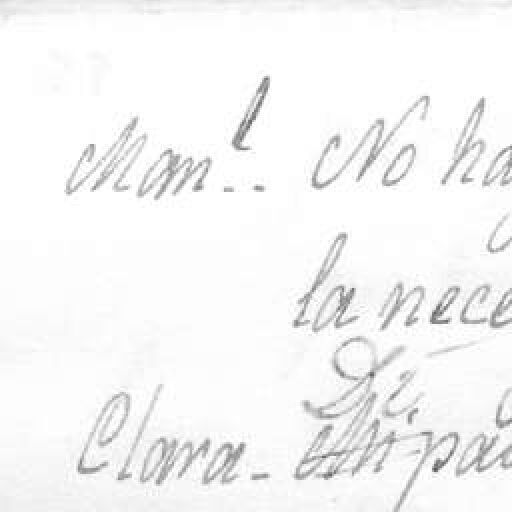 Man.l No ha
la nece
Di
Clara - Mi pa